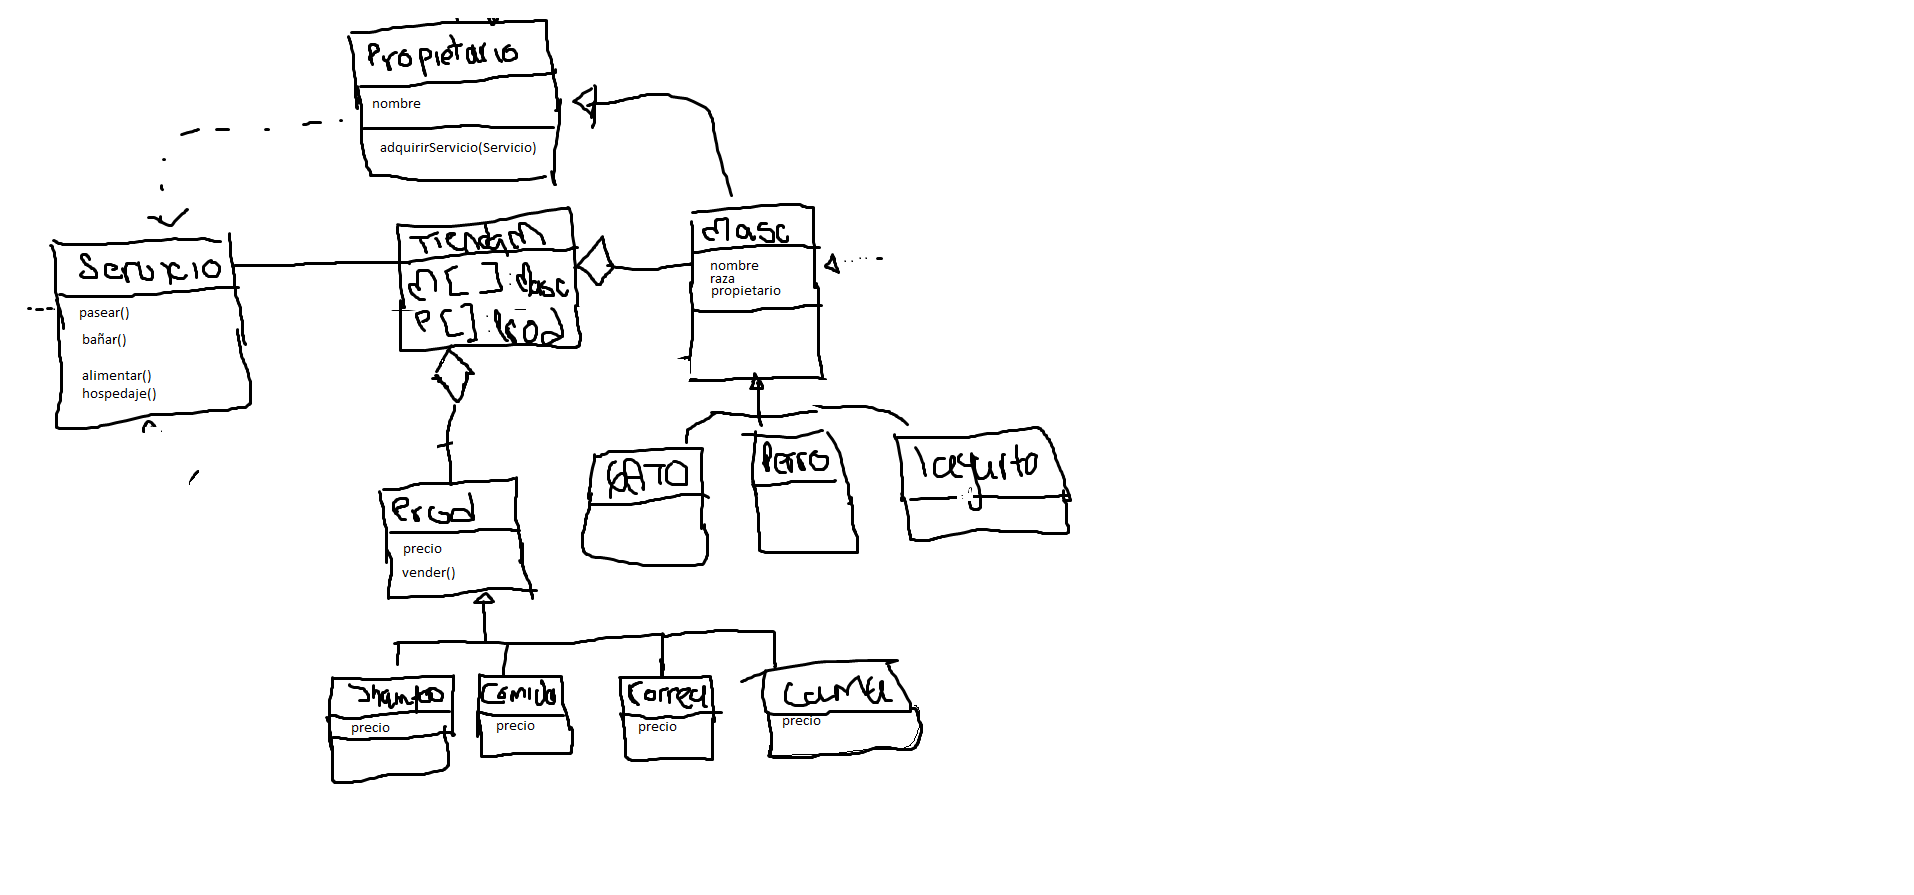 Propietario
nombre
adquirirServicio(Servicio)
Servicio
pasear()
bañar()
alimentar()
hospedaje()
TiendaM
M[]:Masc
P[]:Prod
Masc
nombre
raza
propietario
GATO
Perro
Prod
precio
vender()
Shampoo
precio
Comida
precio
Correa
precio
Cama
precio